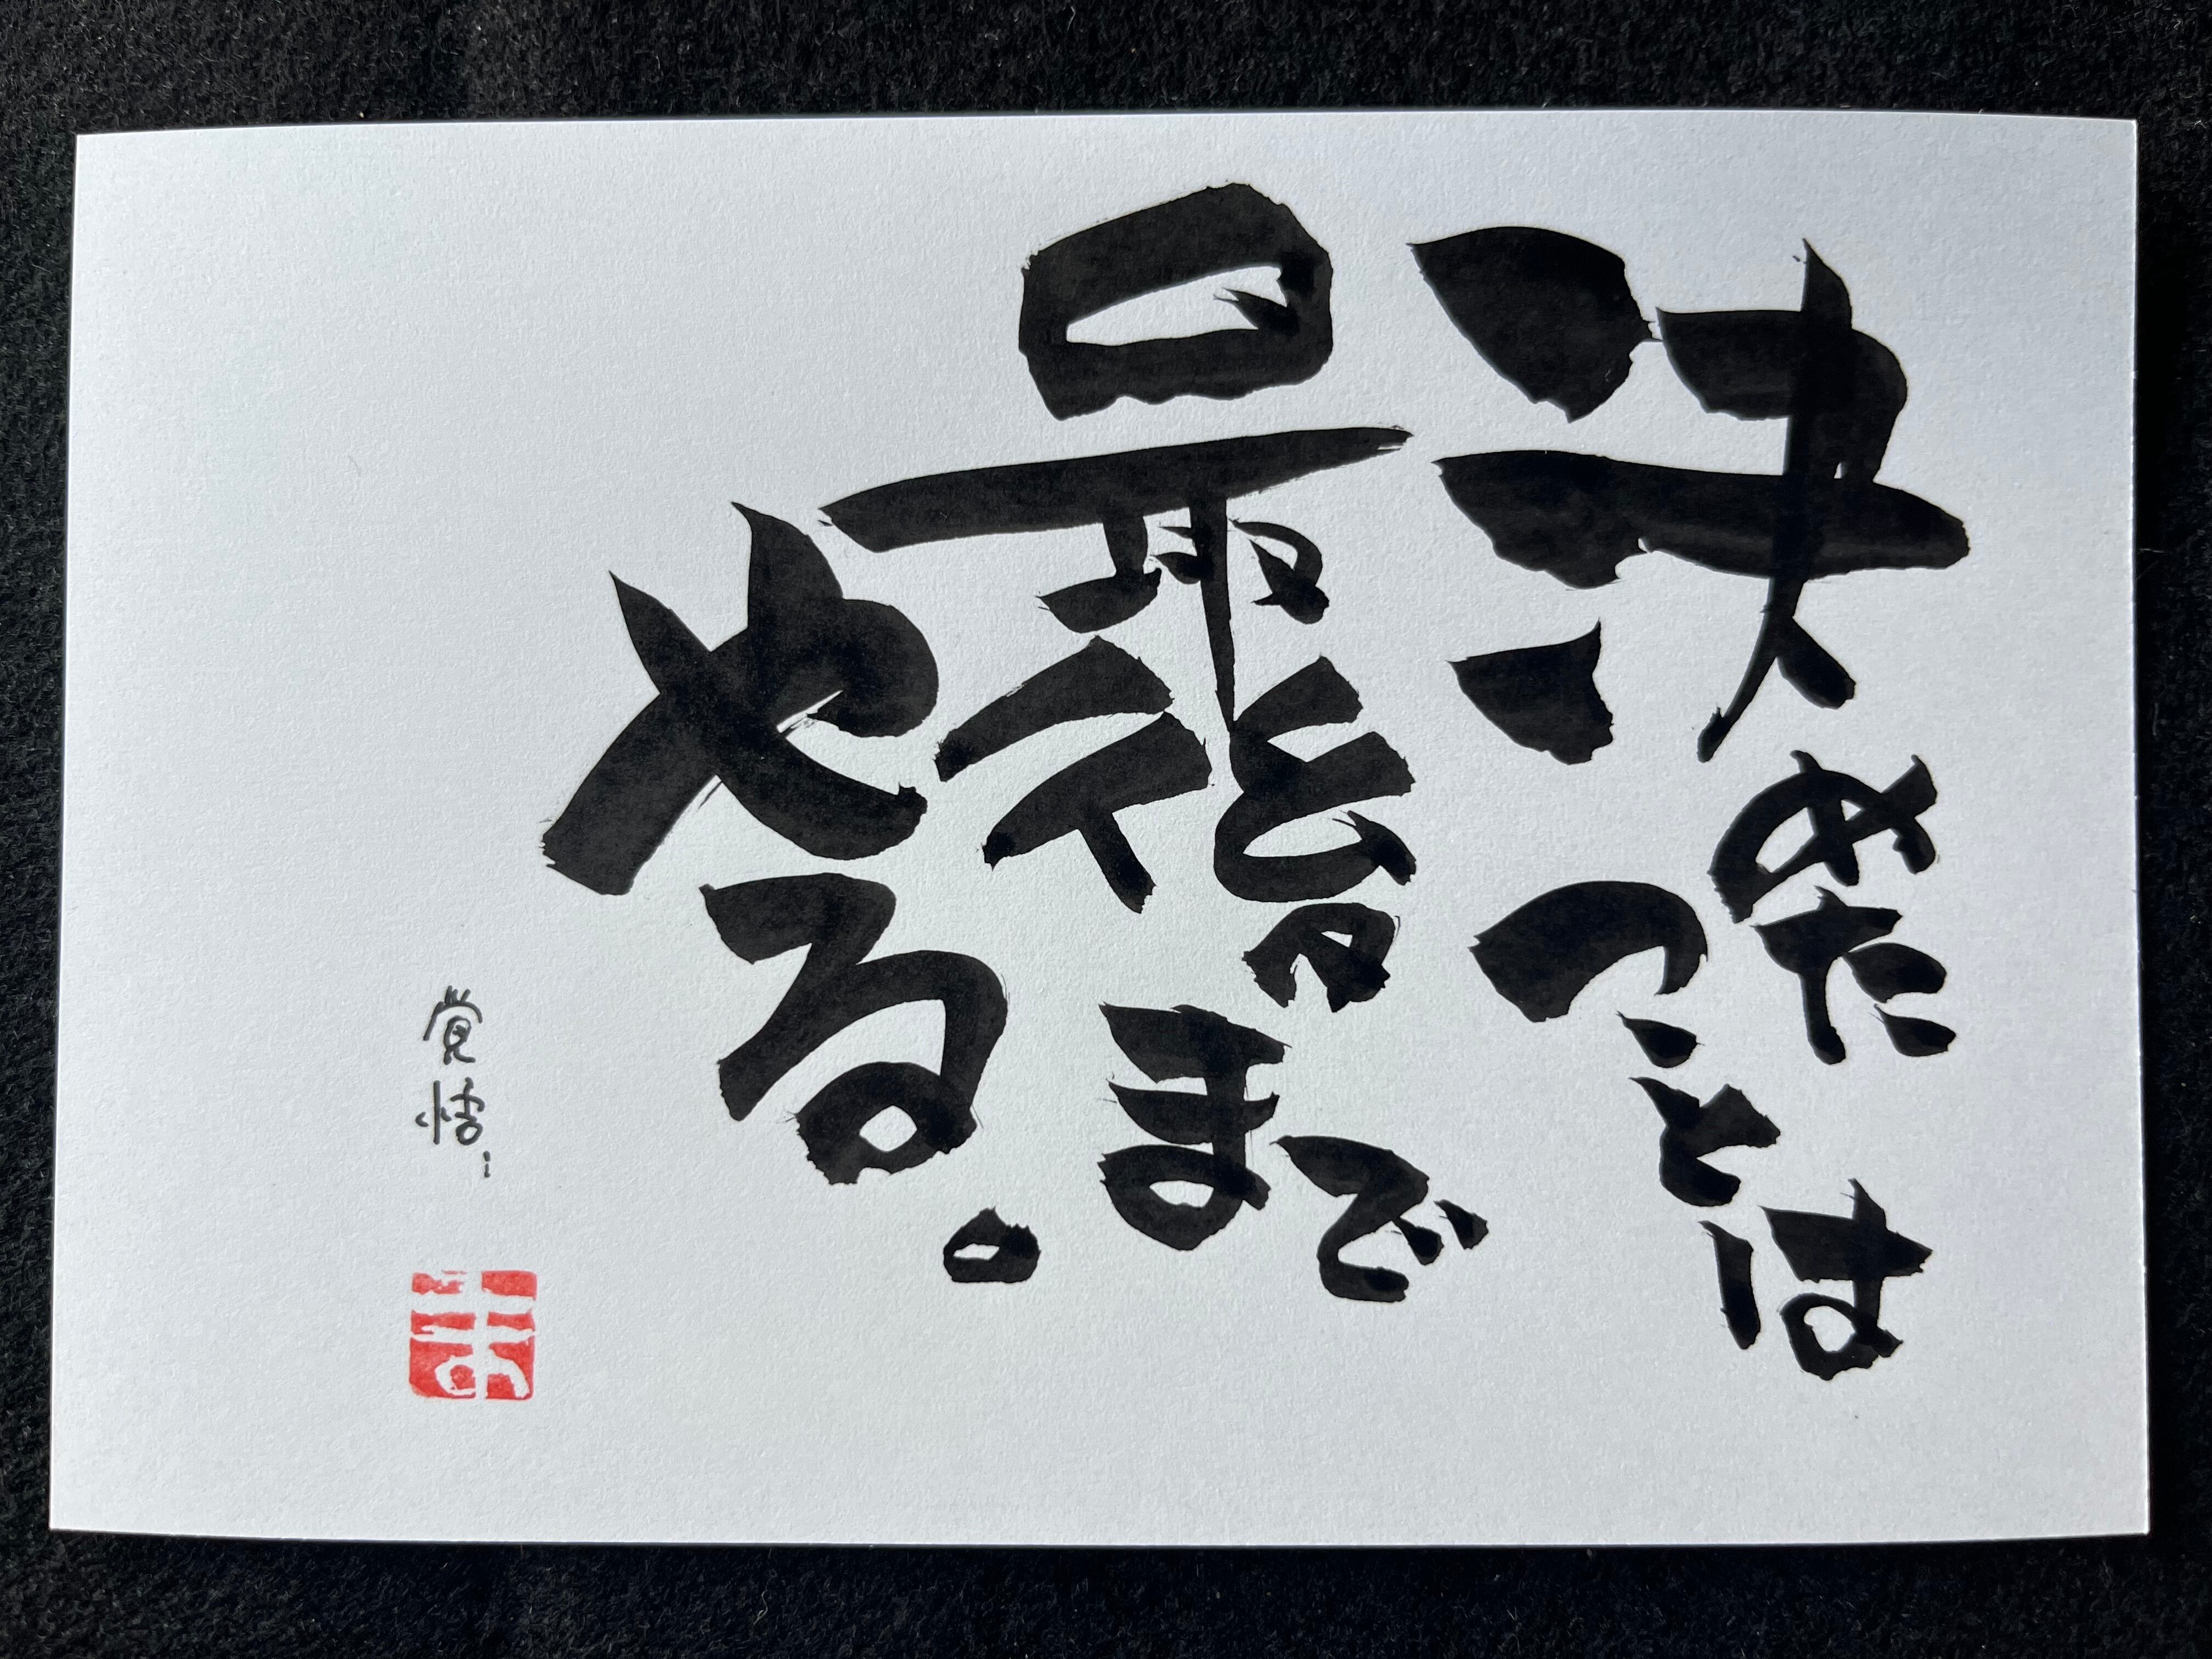 決めたことは
最後まで
やる。
覚悟!
ま